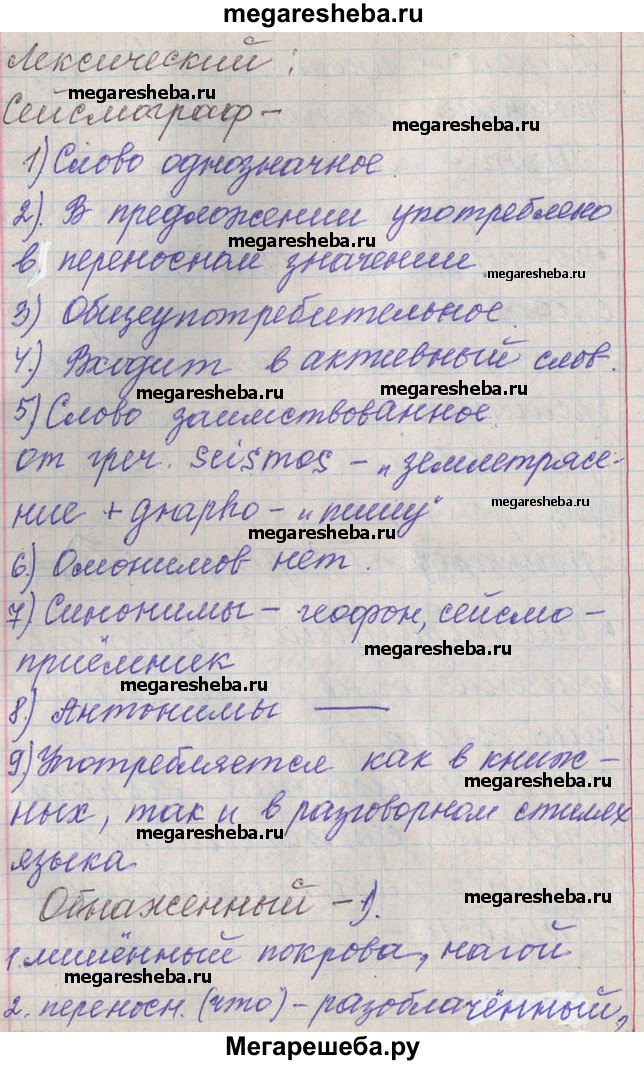 megaresheba.ru
Лексический:
megaresheba.ru
Сейсмограф -
megaresheba.ru
1) Слово однозначное.
megaresheba.ru
2). В предложении употреблено
megaresheba.ru
в переносном значении.
megaresheba.ru
3) Общеупотребительное.
4.) Входит в активный слов.
megaresheba.ru megaresheba.ru
5) Слово заимствованное
от греч. seismos - „землетрясе-
megaresheba.ru
ние + grapho - „пишу“
megaresheba.ru
6.) Омонимов нет.
7) Синонимы - геофон, сейсмо-
megaresheba.ru
приёмник
megaresheba.ru
8.) Антонимы —
9) Употребляется как в книж-
megaresheba.ru
ных, так и в разговорном стилях
megaresheba.ru
языка.
megaresheba.ru
Обнаженный - 1).
1. лишённый покрова, нагой
megaresheba.ru
2. переносн. (что) - разоблачённый,
Мегарешеба.ру